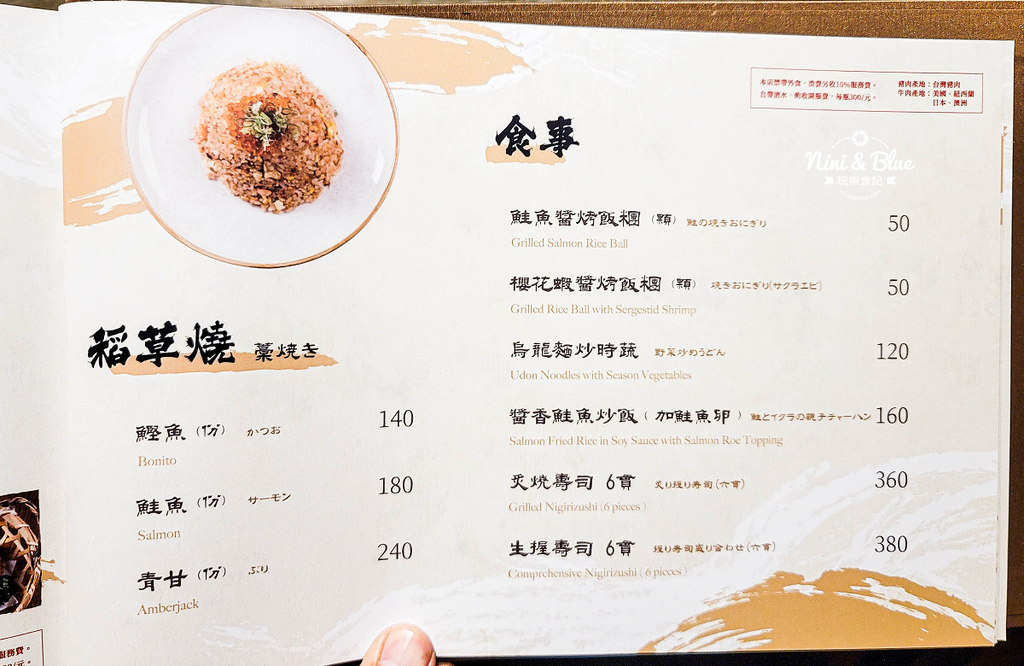 本店禁帶外食，消費另收10%服務費。
自帶酒水，酌收開瓶費，每瓶300/元。
豬肉產地：台灣豬肉
牛肉產地：美國、紐西蘭
日本、澳洲
Nini & Blue
玩樂食記
食事
鮭魚醬烤飯糰（顆） 鮭の焼きおにぎり 50
Grilled Salmon Rice Ball
櫻花蝦醬烤飯糰（顆） 焼きおにぎり(サクラエビ) 50
Grilled Rice Ball with Sergestid Shrimp
烏龍麵炒時蔬 野菜炒めうどん 120
Udon Noodles with Season Vegetables
醬香鮭魚炒飯（加鮭魚卵） 鮭とイクラの親子チャーハン 160
Salmon Fried Rice in Soy Sauce with Salmon Roe Topping
炙燒壽司 6貫 炙り握り寿司(六貫) 360
Grilled Nigirizushi ( 6 pieces )
生握壽司 6貫 握り寿司盛り合わせ(六貫) 380
Comprehensive Nigirizushi ( 6 pieces )
稻草燒 藁焼き
鰹魚（1份） かつお 140
Bonito
鮭魚（1份） サーモン 180
Salmon
青甘（1份） ぶり 240
Amberjack
服務費。
00/元。